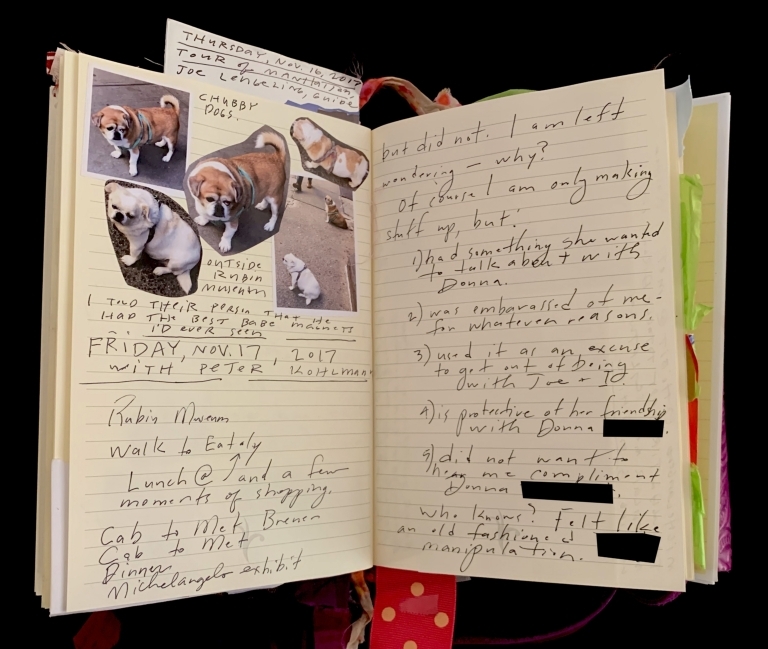 THURSDAY, NOV. 16, 2017
TOUR OF MANHATTAN,
JOE LENGELING, GUIDE
CHUBBY
DOGS.
OUTSIDE
RUBIN
MUSEUM
I TOLD THEIR PERSON THAT HE
HAD THE BEST BABE MAGNETS
I'D EVER SEEN
FRIDAY, NOV. 17, 2017
WITH PETER KOHLMAN
Rubin Museum
Walk to Eataly
Lunch @ ↑ and a few
moments of shopping.
Cab to Met Breuer
Cab to Met
Dinner
Michelangelo exhibit
but did not. I am left
wondering – why?
Of course I am only making
stuff up, but:
1) had something she wanted
to talk about with
Donna.
2) was embarassed of me –
for whatever reasons.
3) used it as an excuse
to get out of being
with Joe + I.
4) is protective of her friendship
with Donna
5) did not want to
hear me compliment
Donna
Who knows? Felt like
an old fashioned
manipulation.